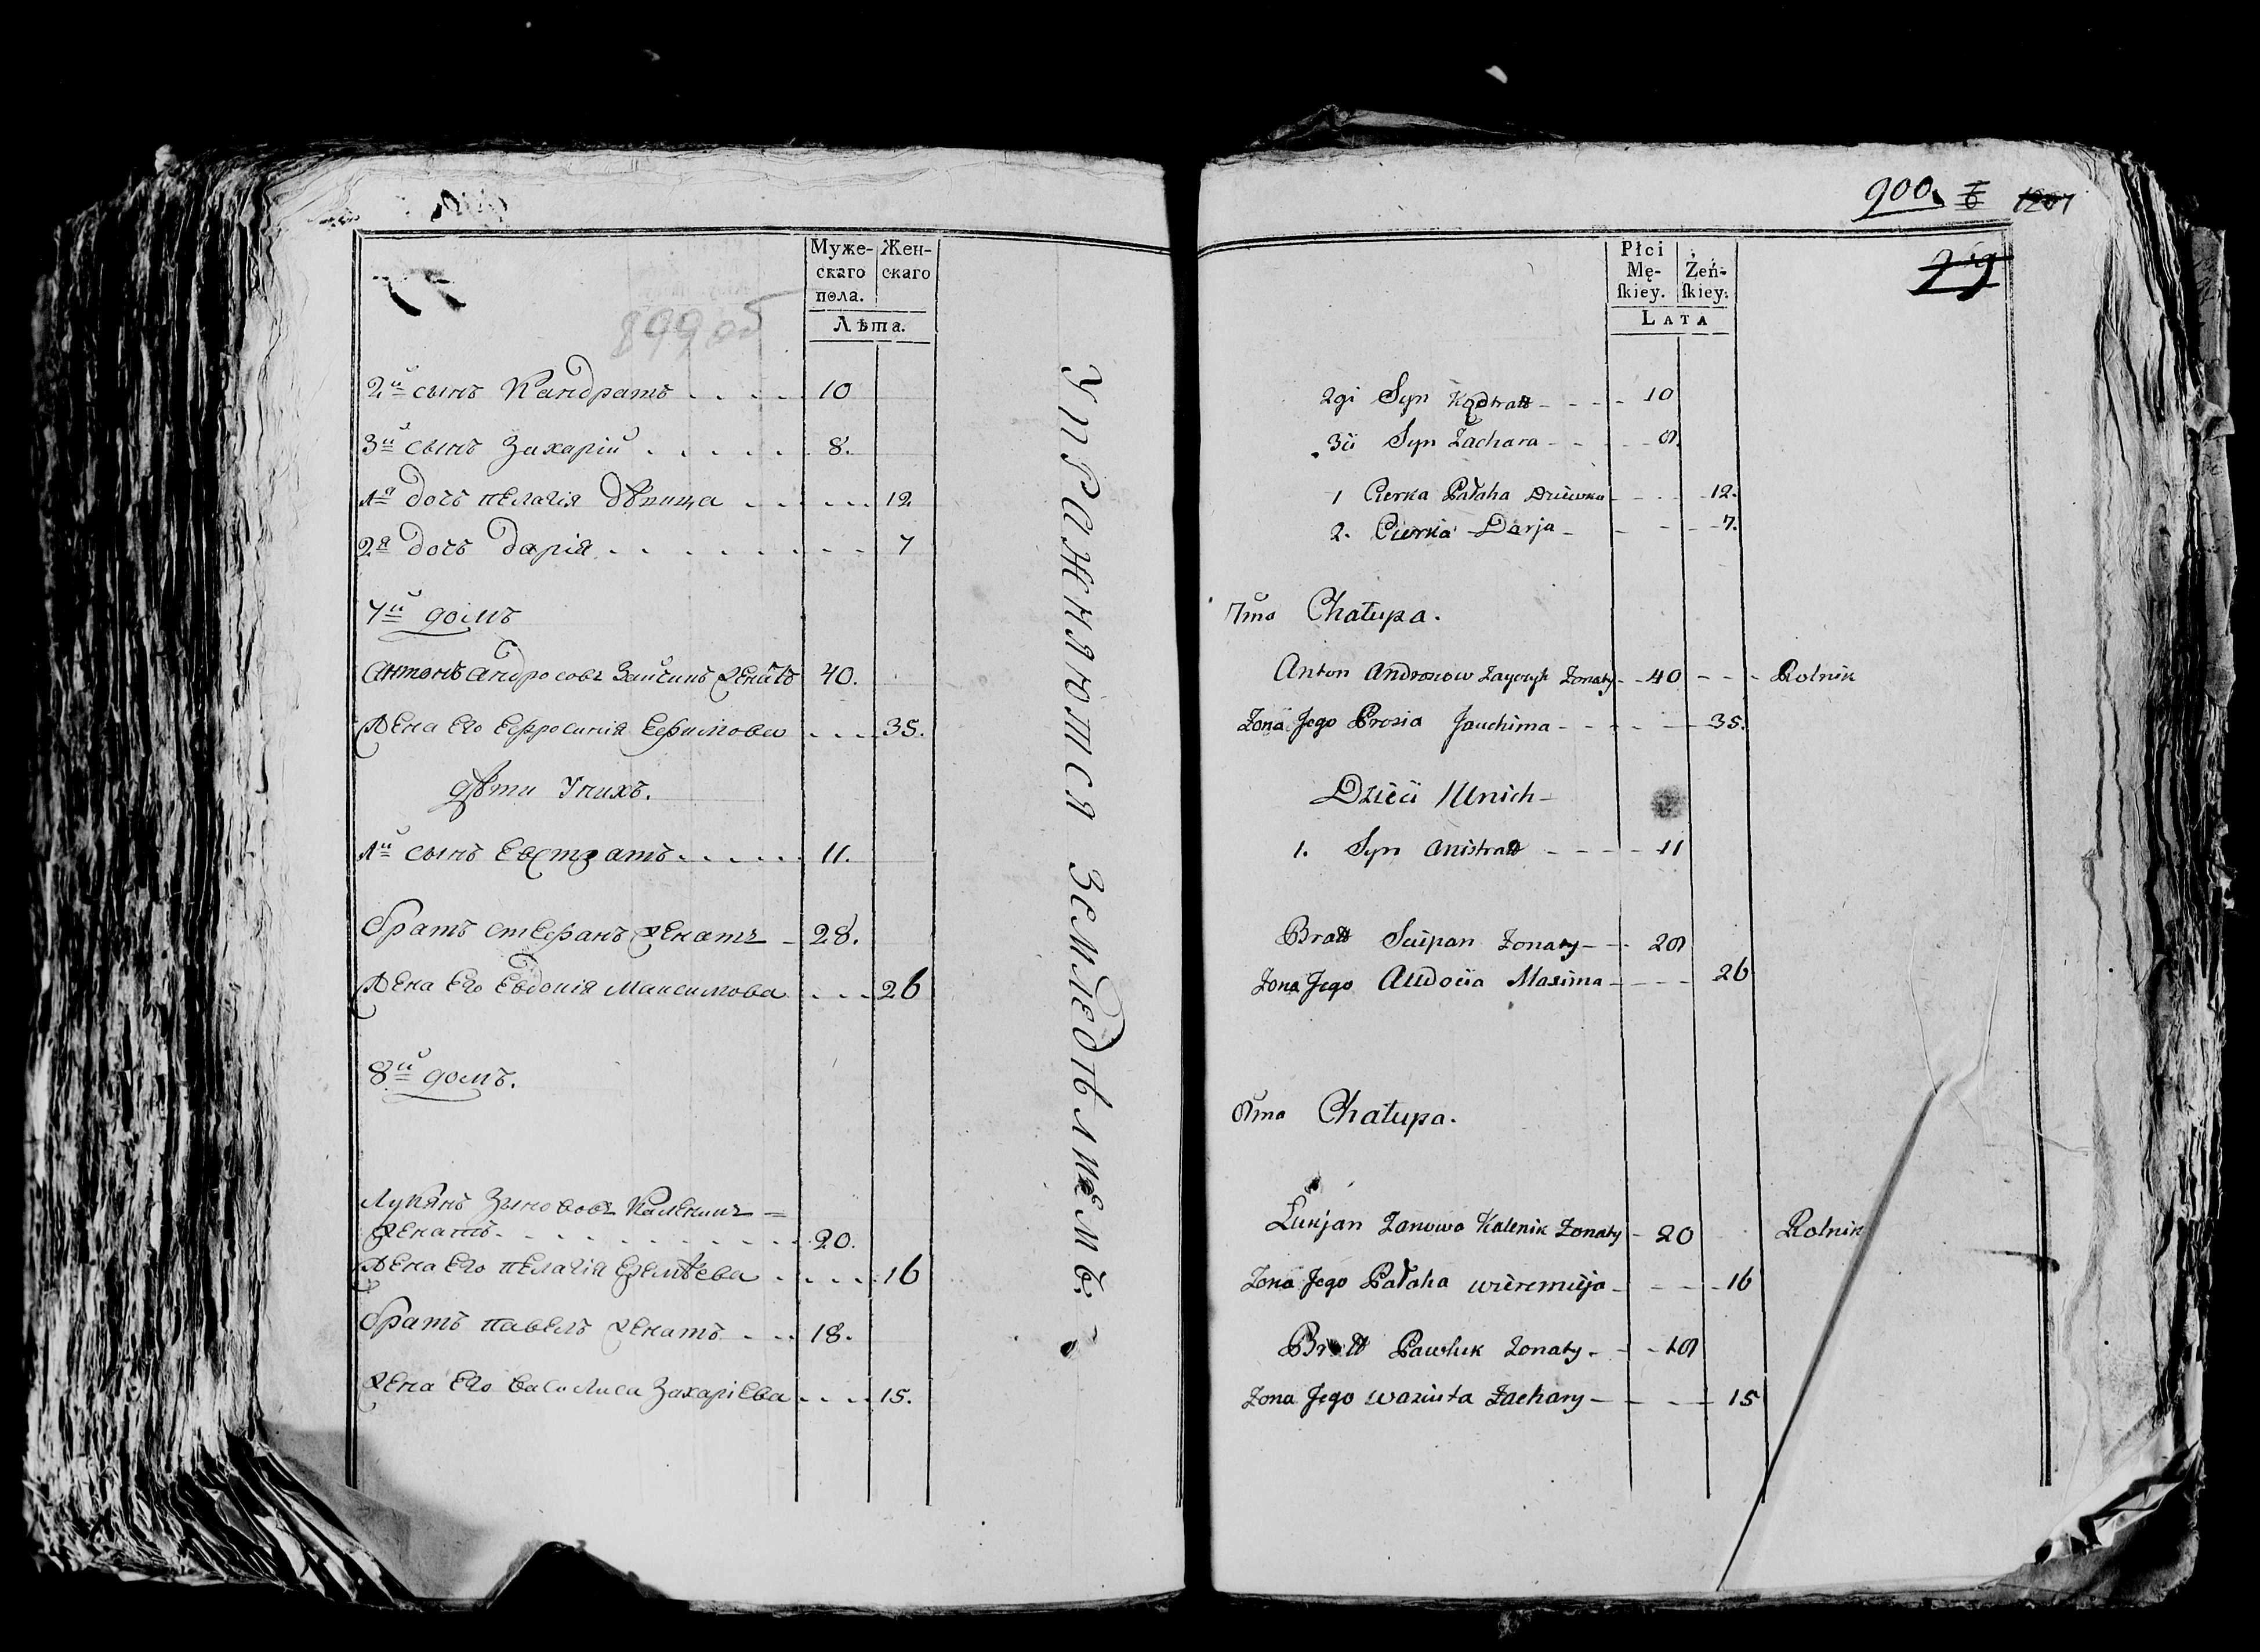 899 об
Муже-
скаго
пола.
Жен-
скаго
Лѣта.
2й сынъ Кандратъ . . . . 10
3й сынъ Захарій . . . . . 8.
1я дочь пелагія дѣвица . . . . . 12
2я дочь дарія . . . . . . . . 7
7й домъ
Антонъ Андросовъ Зайчикъ женатъ 40.
Жена Его Ефросинія Ефимова . . . 35.
дѣти Унихъ.
1й сынъ Евстратъ . . . . . 11.
братъ стефанъ женатъ - 28.
Жена Его Евдокія Максимова . . . 26
8й домъ.
Лукянъ Зинововъ Каленикъ =
женатъ . . . . . . . . . . 20.
Жена Его пелагія Еремѣева . . . . 16
братъ павелъ женатъ . . . 18.
Жена Его василиса Захаріева . . . 15.
Упражняются Земледѣлиемъ.
900.
1207
Płci
Mę-
ſkiey.
Żeń-
ſkiey.
LATA
2gi Syn Kędratt - - - - 10
3ci Syn Zachara - - - - 8
1 Cierka Pałaha Dziewka - - - - 12.
2. Cierka Darja - - - - 7.
7ma Chałupa.
Anton Androsow Zayczyk Żonaty - - 40 - - - Rolnik
Żona Jego Prosia Jauchima - - - - - 35.
Dzieci Unich -
1. Syn Anistratt - - - - 11
Bratt Scipan Żonaty - - 28
Żona Jego Audocia Maxima - - - - 26
8ma Chałupa.
Łukjan Zanowa Kalenik Żonaty - 20 Rolnik
Żona Jego Pałaha Wieremieja - - - - 16
Bratt Pawluk Żonaty - - - 18
Żona Jego Waziuta Zachary - - - - 15